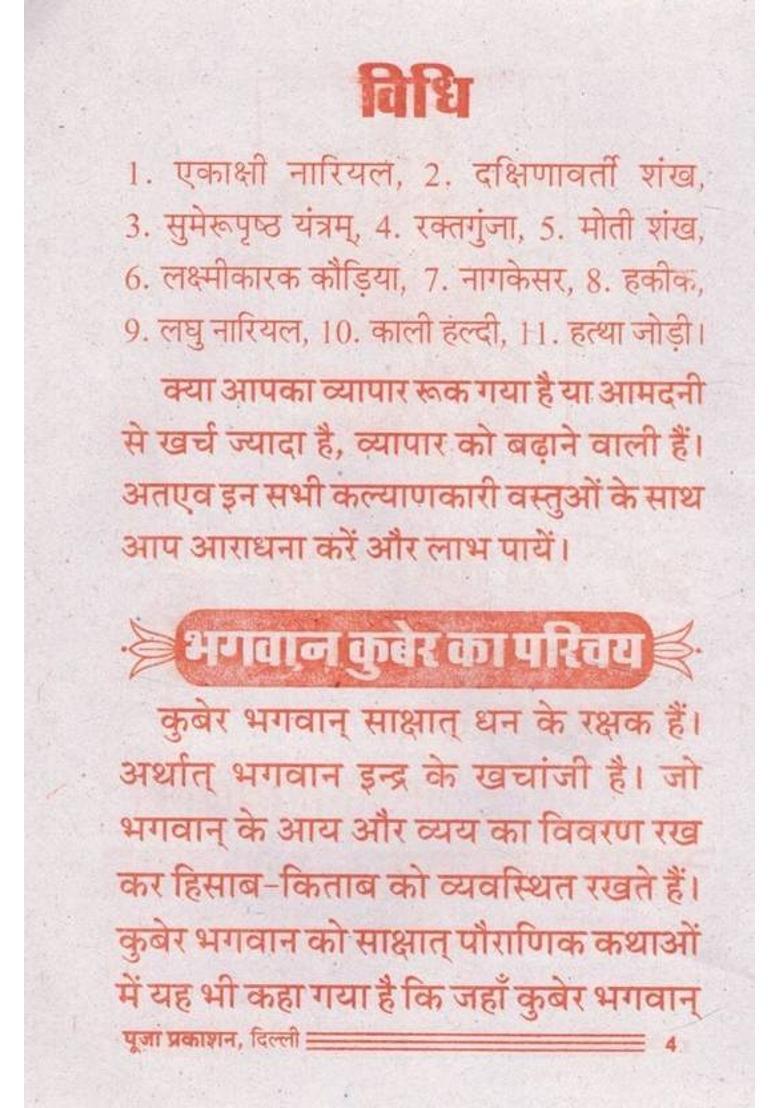 विधि
1. एकाक्षी नारियल, 2. दक्षिणावर्ती शंख,
3. सुमेरूपृष्ठ यंत्रम्, 4. रक्तगुंजा, 5. मोती शंख,
6. लक्ष्मीकारक कौड़िया, 7. नागकेसर, 8. हकीक,
9. लघु नारियल, 10. काली हल्दी, 11. हत्था जोड़ी।
क्या आपका व्यापार रूक गया है या आमदनी
से खर्च ज्यादा है, व्यापार को बढ़ाने वाली हैं।
अतएव इन सभी कल्याणकारी वस्तुओं के साथ
आप आराधना करें और लाभ पायें।
भगवान कुबेर का परिचय
कुबेर भगवान् साक्षात् धन के रक्षक हैं।
अर्थात् भगवान इन्द्र के खचांजी है। जो
भगवान् के आय और व्यय का विवरण रख
कर हिसाब-किताब को व्यवस्थित रखते हैं।
कुबेर भगवान को साक्षात् पौराणिक कथाओं
में यह भी कहा गया है कि जहाँ कुबेर भगवान्
पूजा प्रकाशन, दिल्ली 4